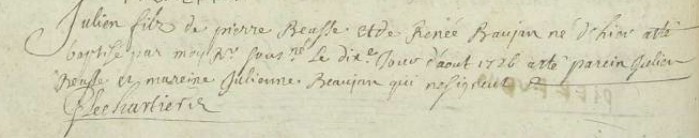 Julien filz de pierre Reasse et de Renée Baujan né d'hier a été
baptisé par moy Rr sous né le dixe Jour d'aout 1726 a été parein Julien
Reasse et mareine Julienne Beaujan qui ne signent
Lechartier